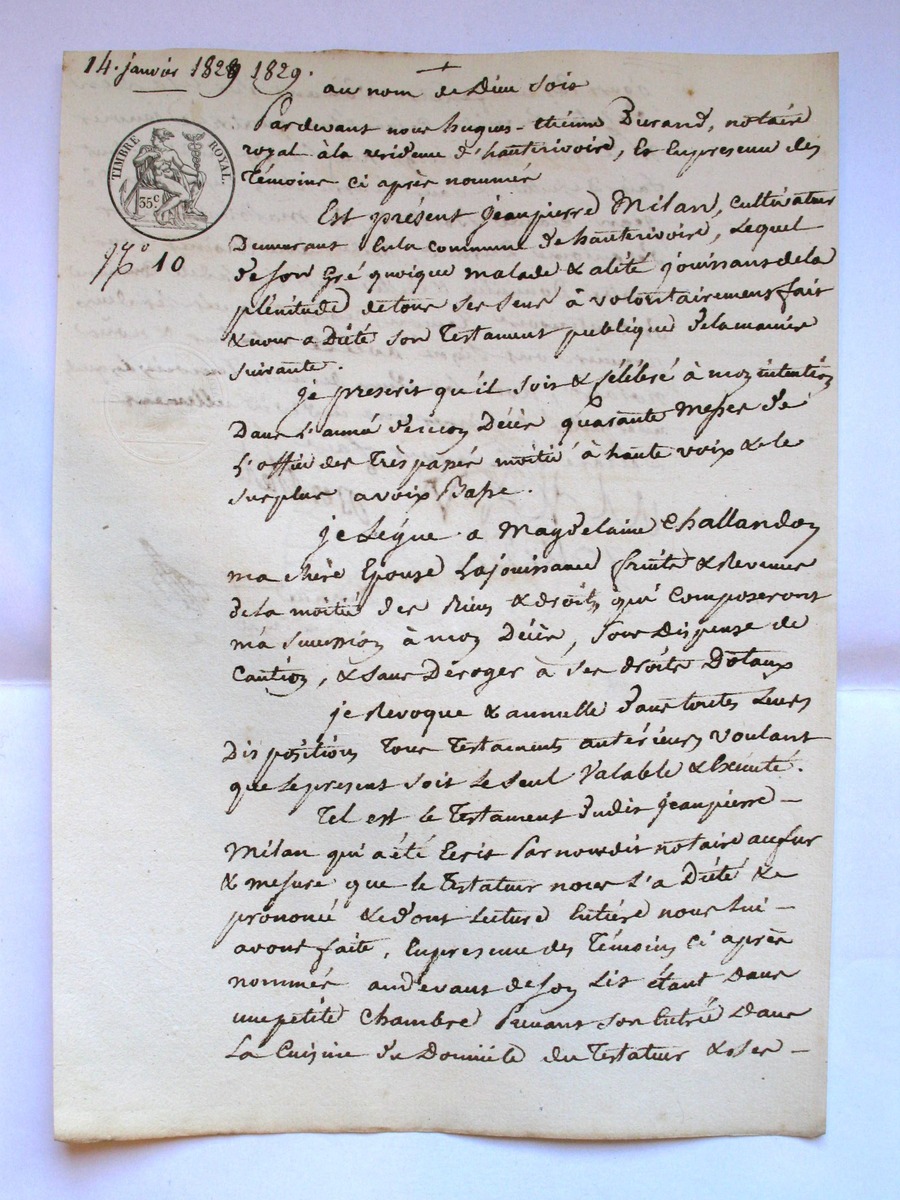 14. janvier 1829 1829.
au nom de Dieu soit
Pardevant nous hugues-etienne Durand, notaire
royal à la residence d'hauterivoire, & en presence des
Témoins ci après nommés
TIMBRE ROYAL.
35c
Est présent jeanpierre Milan, cultivateur
N° 10
Demeurant en la commune de hauterivoire, Lequel
de son Gré quoique malade & alité jouissant de la
plenitude de tous ses sens à volontairement fait
& nous a Dicté son Testament publique de la maniere
suivante.
je prescrit qu'il soit & célébré à mon intention
Dans l'année de mon Décès quarante Messes de
L'office des Trèspassés moitié à haute voix & le
surplus a voix Basse.
je Legue a Magdelaine Challandon
ma chère Epouse La jouissance fruits & Revenus
de la moitié des Biens & droits qui Composeront
ma succession à mon Décès, sous Dispense de
Caution, & sans Déroger à ses droits Dotaux
je Revoque & annulle dans toutes Leurs
Dispositions Tous Testaments antérieurs voulant
que Le present soit Le seul Valable & Exécuté.
Tel est le Testament dudit jeanpierre –
Milan qui a été Ecrit Par nousdit notaire au fur
& mesure que le Testateur nous l'a Dicté &
prononcé & dont Lecture Entiére nous lui –
avons faite, En presence des Témoins ci après
nommés audevant de son Lit étant Dans
une petite Chambre Prenant son Entrée Dans
La Cuisine du Domicile du Testateur & ses –